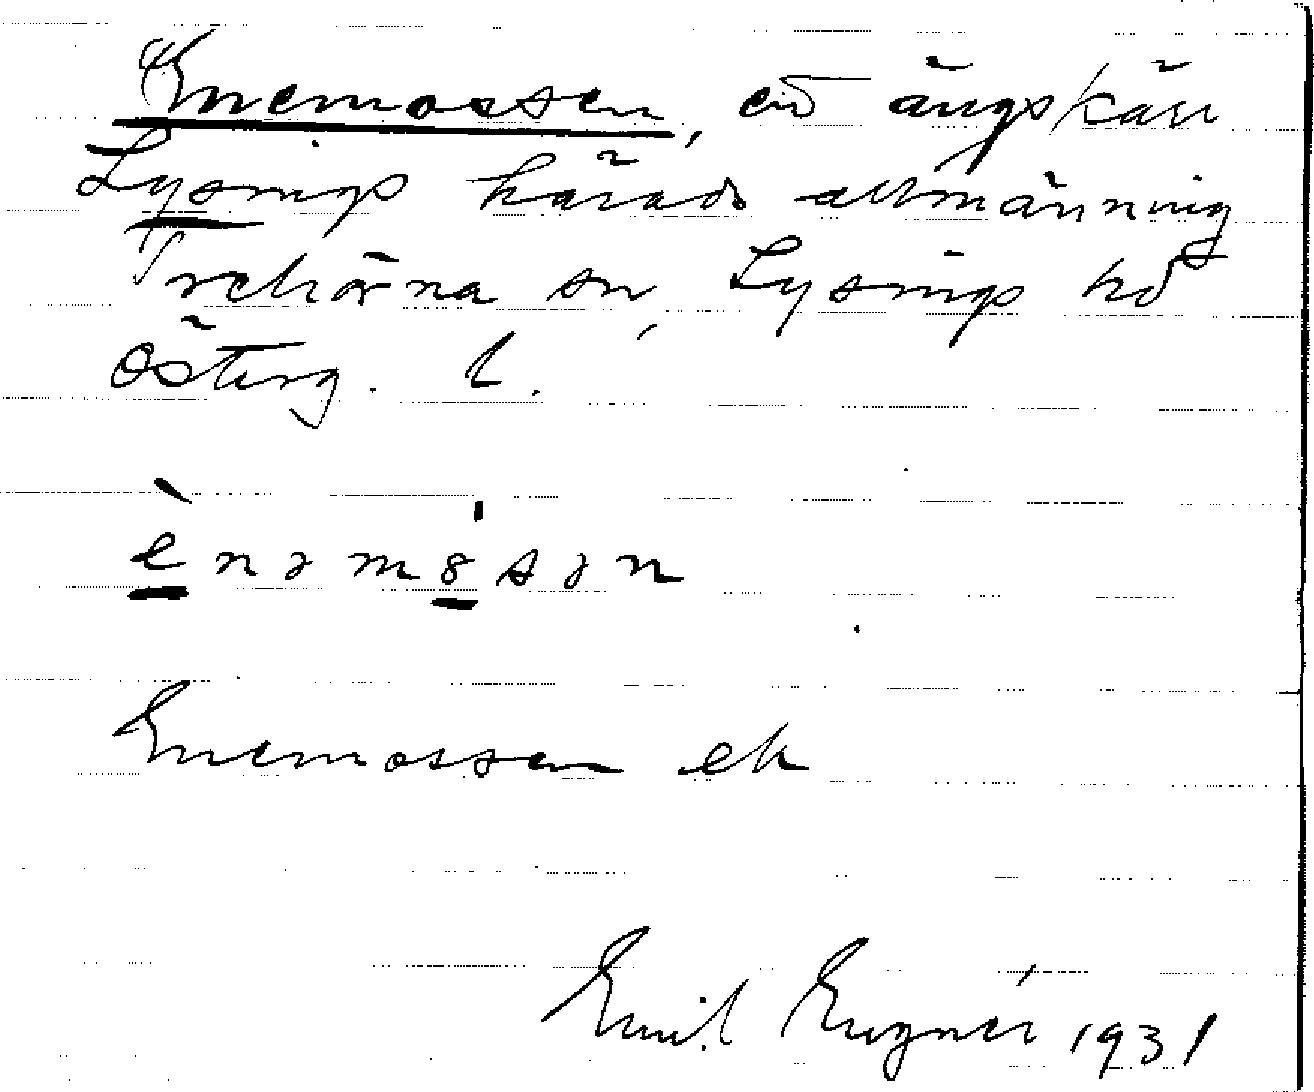 "Enemossen, ett ängskärr
Lysings härads allmänning
Trehörna sn, Lysings hd
Österg. l.
ènəm8sən
Enemossen ek
Emil Eugnér 1931